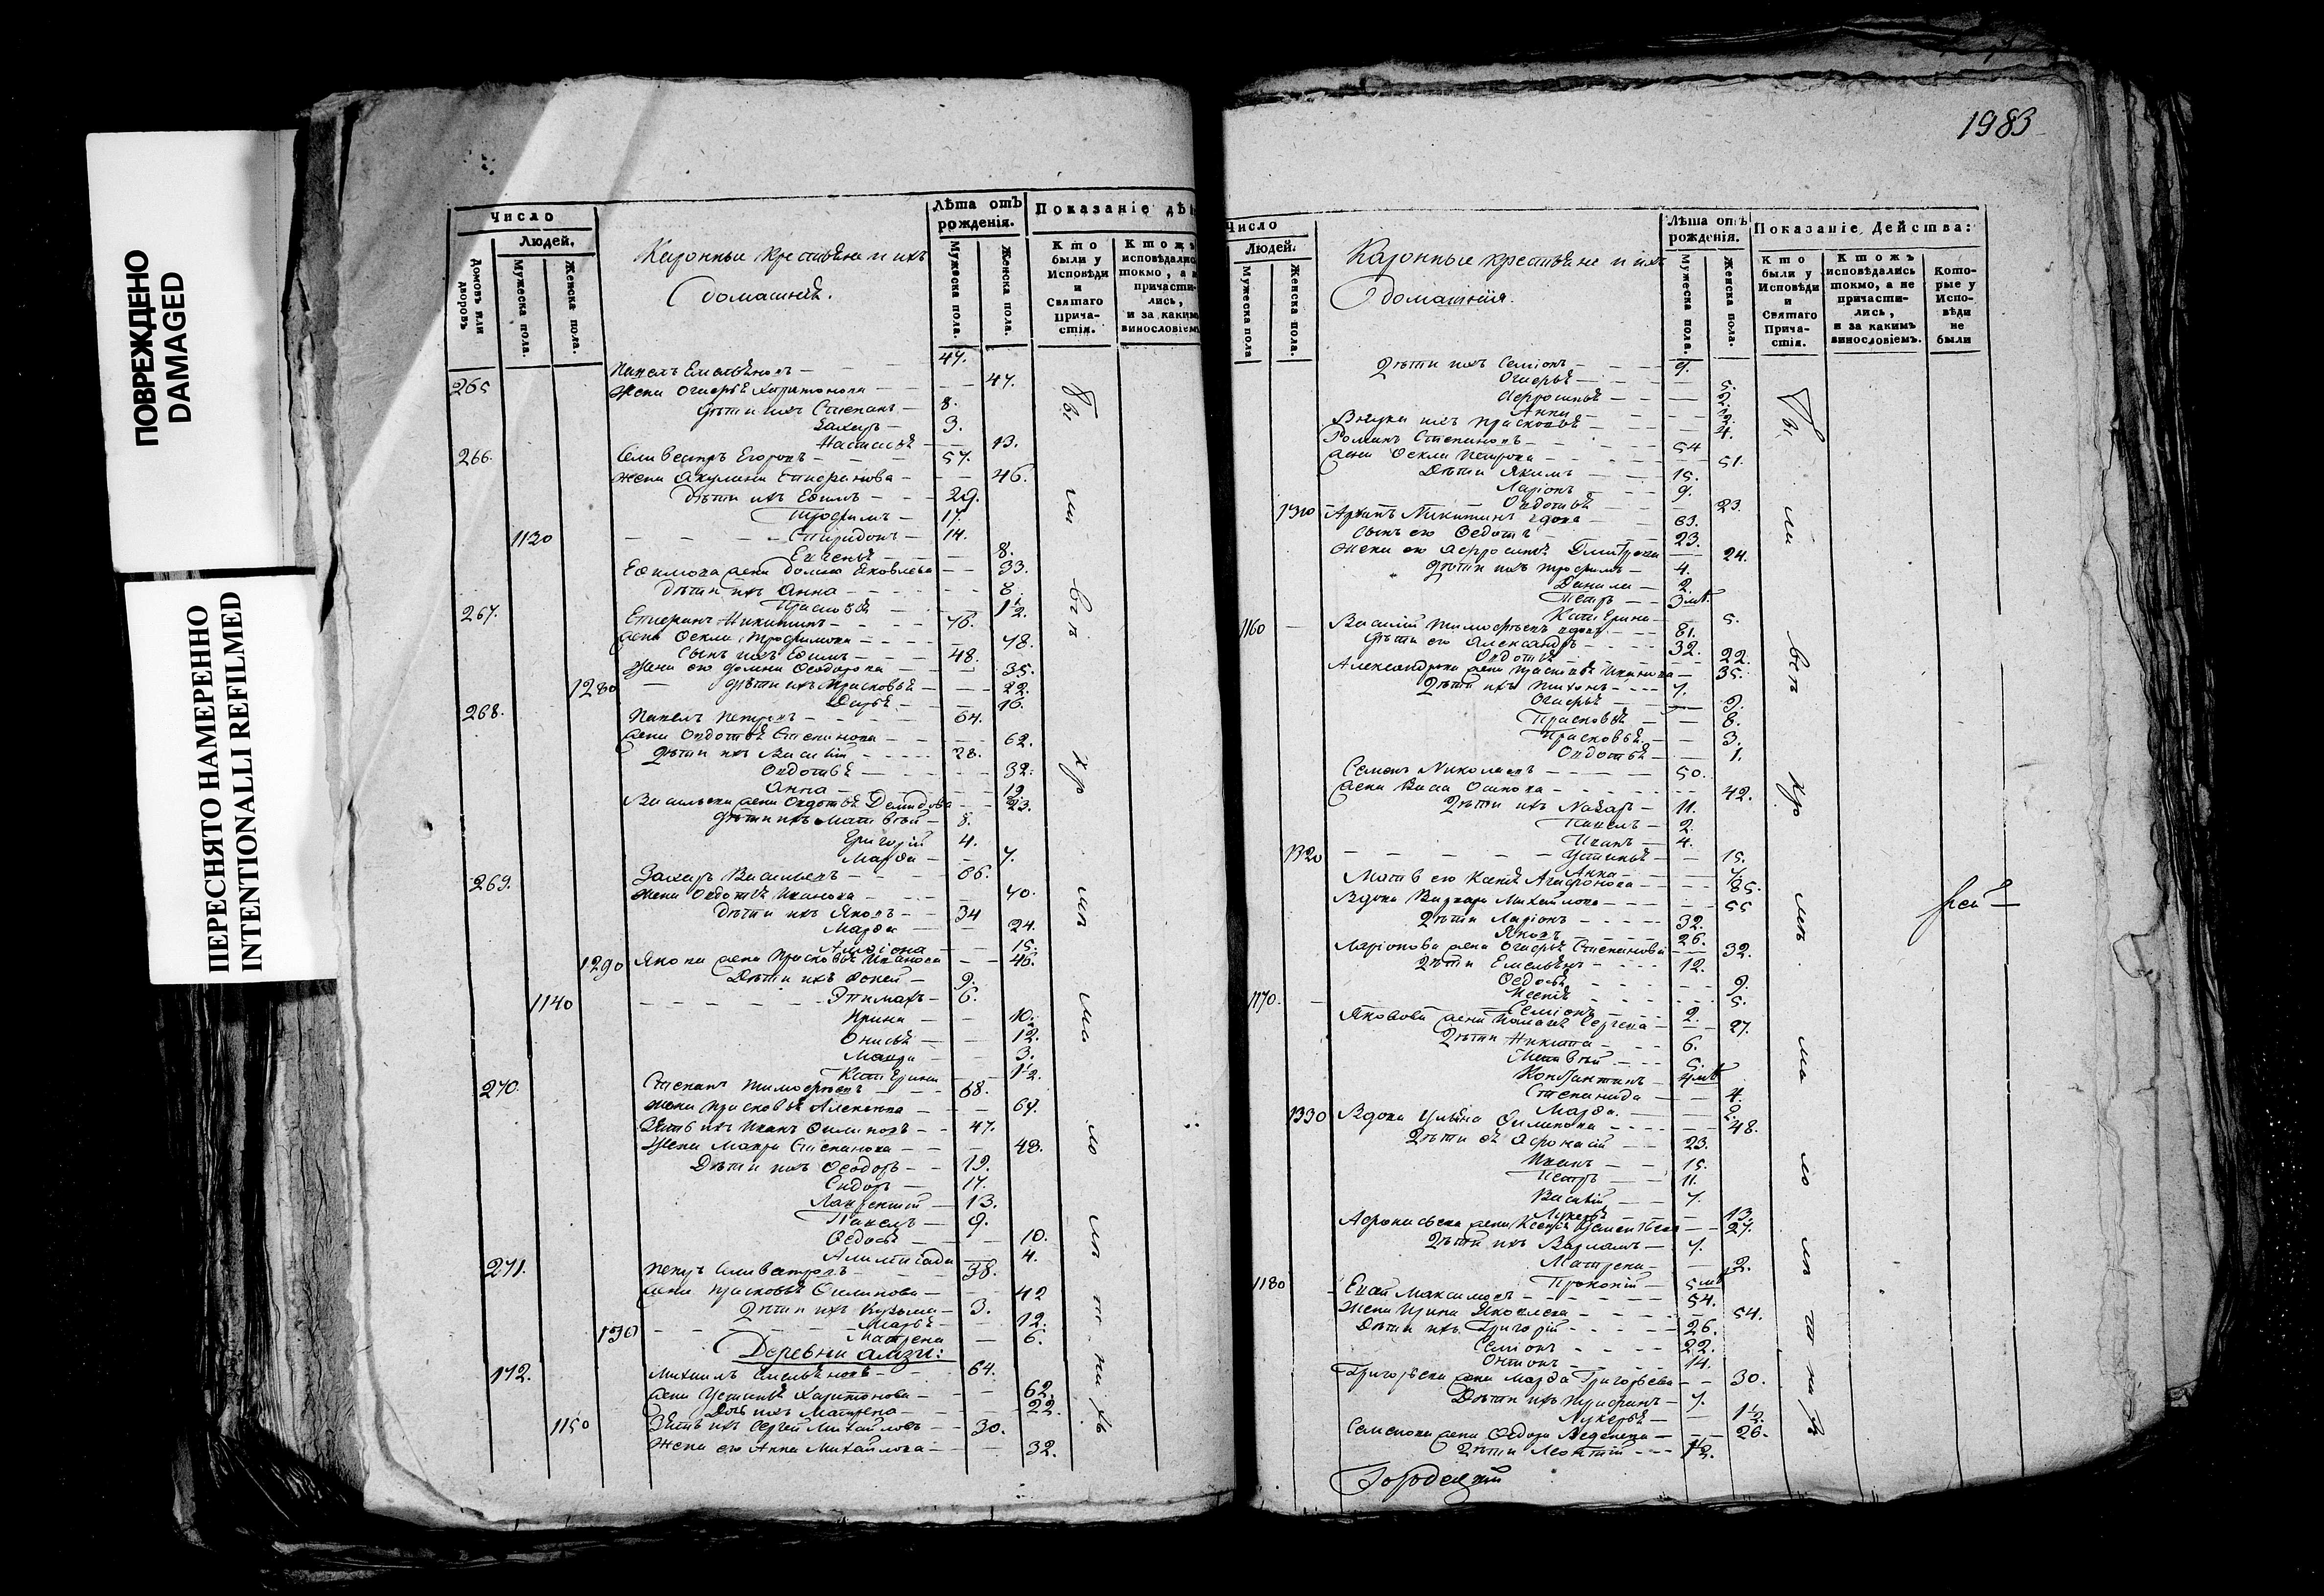 ПОВРЕЖДЕНО
DAMAGED
ПЕРЕСНЯТО НАМЕРЕННО
INTENTIONALLI REFILMED
Число
Людей,
Домовъ или дворовъ
Мужеска пола.
Женска пола.
Казонные крестьяне и ихъ
домашнiе.
Лѣта отъ
рожденiя.
Мужеска пола.
Женска пола.
Показанiе дѣ
Кто
были у
Исповѣди
и
Святаго
Прича-
стiя.
Ктожъ
исповѣдалис
токмо, а н
причасти-
лись,
и за каким
винословiем
265 Павелъ Емельяновъ 47.
Жена Огафья Харитонова 47.
Дѣти ихъ Степанъ 8.
Захаръ 3.
Настасья 13.
266. Селиверстъ Егоровъ 57.
Жена Акулина Стафанова 46.
Дѣти ихъ Ефимъ 29.
Трофимъ 17.
1130 Спиридонъ 14.
Евгенья 8.
Ефимова жена Домна Яковлева 33.
Дѣти ихъ Анна 8.
Прасковья 1½.
267. Стефанъ Никитинъ 76.
Жена Фекла Трофимова 78.
Сынъ ихъ Ефимъ 48.
Жена его Домна Феодорова 35.
1280 Дѣти ихъ Прасковья 22.
Дарья 16.
268. Павелъ Петровъ 64.
Жена Овдотья Степанова 62.
Дѣти ихъ Василiй 28.
Овдотья 32.
Анна 19.
Васильева жена Овдотья Демидова 33.
Дѣти ихъ Матвѣй 8.
Григорiй 4.
Марфа 7.
269. Захаръ Васильевъ 66.
Жена Овдотья Иванова 70.
Дѣти ихъ Яковъ 34
Марфа 24.
15.
1290 Якова жена Прасковья Иванова 46.
Дѣти ихъ Фокей 9.
1140 Эпимахъ 6.
Ирина 10.
Онисья 12.
Мавра 3.
Катерина 1½.
270. Степанъ Тимофеевъ 68.
Жена Прасковья Алексеева 67.
Зять ихъ Иванъ Филиповъ 47.
Жена Мавра Степанова 48.
Дѣти ихъ Феодоръ 19.
Сидоръ 17.
Лаврентiй 13.
Павелъ 9.
Федосья 10.
4.
271. Петръ Селиверстовъ 38.
Жена Прасковья Филипова 42
Дѣти ихъ Кузьма 3.
Марья 12.
130 Матрена 6.
Деревни
172. Михаилъ Емельяновъ 64.
Жена Устинья Харитонова 62.
Дочь ихъ Матрена 22.
1150 Зять ихъ Сергей Михайловъ 30.
Жена его Анна Михайлова 32.
1983
Число
Людей.
Мужеска пола
Женска пола.
Казонные крестьяне и ихъ
домашнiя.
Лѣта отъ
рожденiя.
Мужеска пола.
Женска пола.
Показанiе Действа:
Кто
были у
Исповѣди
и
Святаго
Прича-
стiя.
Ктожъ
исповѣдались
токмо, а не
причасти-
лись,
и за какимъ
винословiемъ.
Кото-
рые у
Испо-
вѣди
не
были
Дѣти ихъ Семiонъ 9.
Огафья 5.
Афросинья 2.
Анна
Внука ихъ Прасковья 4.
Романъ Степановъ 54
Жена Фекла Петрова 51.
Дѣти Якимъ 15.
Ларiонъ 9.
Овдотья 23.
1310 Архипъ Никитинъ вдовъ 63.
Сынъ его Федотъ 23.
Жена его Афросинья Дмитрева 24.
Дѣти ихъ Трофимъ 4.
Данила 2.
Петръ 3 мѣ.
Катерина 5.
1160 Василiй Тимофеевъ вдовъ 81.
Дѣти его Александръ 32.
Овдотья 22.
Александрова жена Прасковья Иванова 35.
Дѣти ихъ Тихонъ 7.
Огафья 9.
Прасковья 8.
Прасковья 3.
Овдотья 1.
Семенъ Николаевъ 50.
Жена Васса Осипова 42.
Дѣти ихъ Назаръ 11.
Павелъ 2.
Иванъ 4.
1320 Устинья 15.
Анна 7.
Мать его Ксенiя Агафонова 85.
Вдова Варвара Михайлова 55
Дѣти Ларiонъ 32.
Яковъ 26.
Ларiонова жена Огафья Степанова 32.
Дѣти Емельянъ 12.
Федосья 9.
1170. Ксенiя 5.
Семiонъ 2.
Яковова жена Сергеева 27.
Дѣти Никита 6.
Матвѣй 5.
Константинъ 4 мѣ
Степанида 4.
1330 Марфа 2.
Вдова Ульяна Филипова 48.
Дѣти ея Афонасiй 23.
Иванъ 15.
Петръ 11.
Василiй 7.
Лукерья 13.
Афонасьева жена Ксенiя 27.
Дѣти ихъ Варламъ 7.
Матрена 2.
1180 Прокопiй 5 мѣ
Максимовъ 54.
Жена Ирина Яковлева 54.
Дѣти ихъ Григорiй 26.
Семiонъ 22.
14.
Григорьева жена Марфа Григорьева 30.
Дѣти ихъ Трифонъ 7.
Лукерья 1½.
Семенова жена Федора 26.
Дѣти Леонтiй 1½.